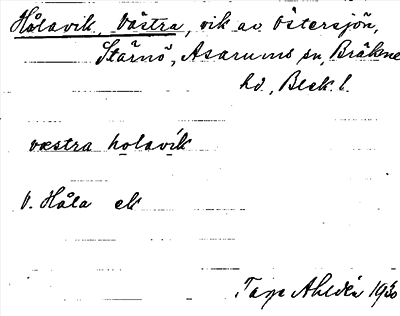 Hålavik, Västra, vik av Östersjön,
Stärnö, Asarums sn, Bräkne
hd., Blek. l.
væstra holavik
V. Håla ek
Tage Ahldén 1930